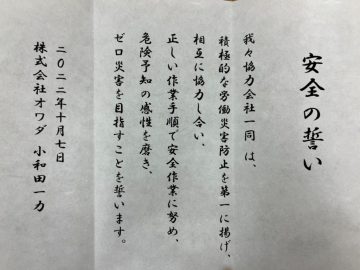 安全の誓い
我々協力会社一同は、
積極的な労働災害防止を第一に掲げ、
相互に協力し合い、
正しい作業手順で安全作業に努め、
危険予知の感性を磨き、
ゼロ災害を目指すことを誓います。
二〇二二年十月七日
株式会社オワダ 小和田一力